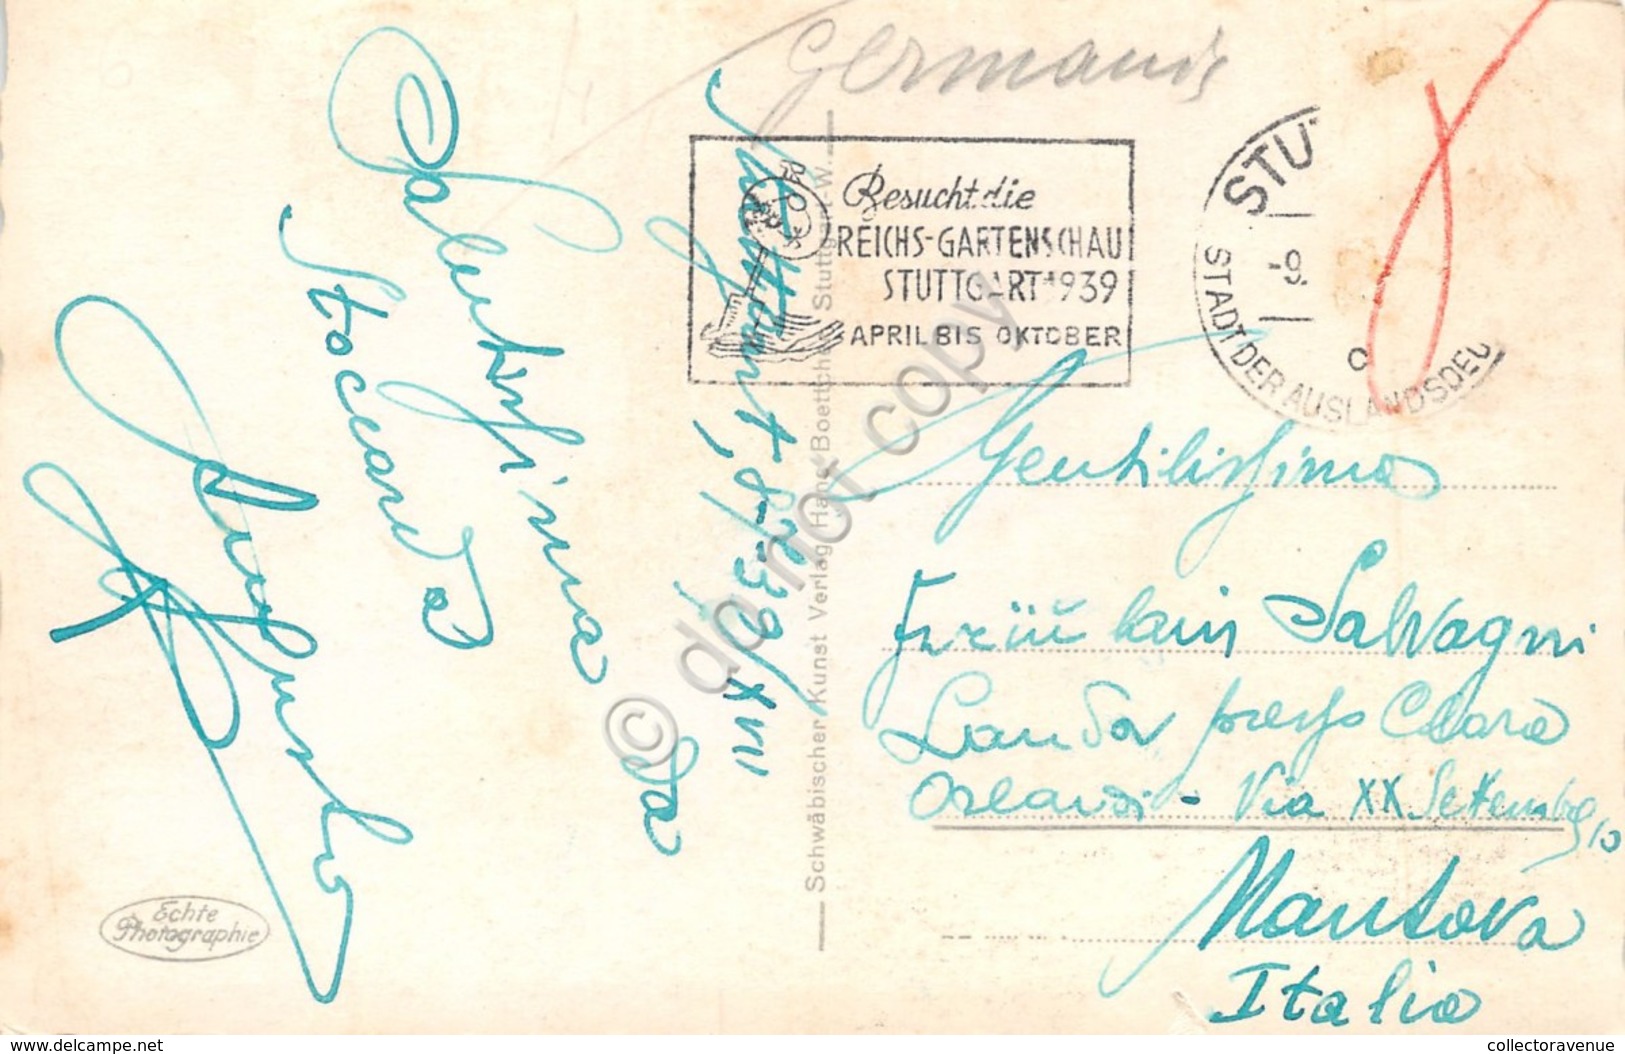 Germania
Besucht die
REICHS-GARTENSCHAU
STUTTGART 1939
APRIL BIS OKTOBER
STUT
-9.
c
STADT DER AUSLANDSDEU
Salutissima da
Stoccarda
Stuttgart, 8-
-39/XVII
Schwäbischer Kunst Verlag Hans Boettcher Stuttgart-W.
Gentilissima
Fräulain Salvagni
Landa presso Clara
Orlandi - Via XX Settembre 10
Mantova
Italia
Echte
Photographie
© do not copy
www.delcampe.net
collectoravenue